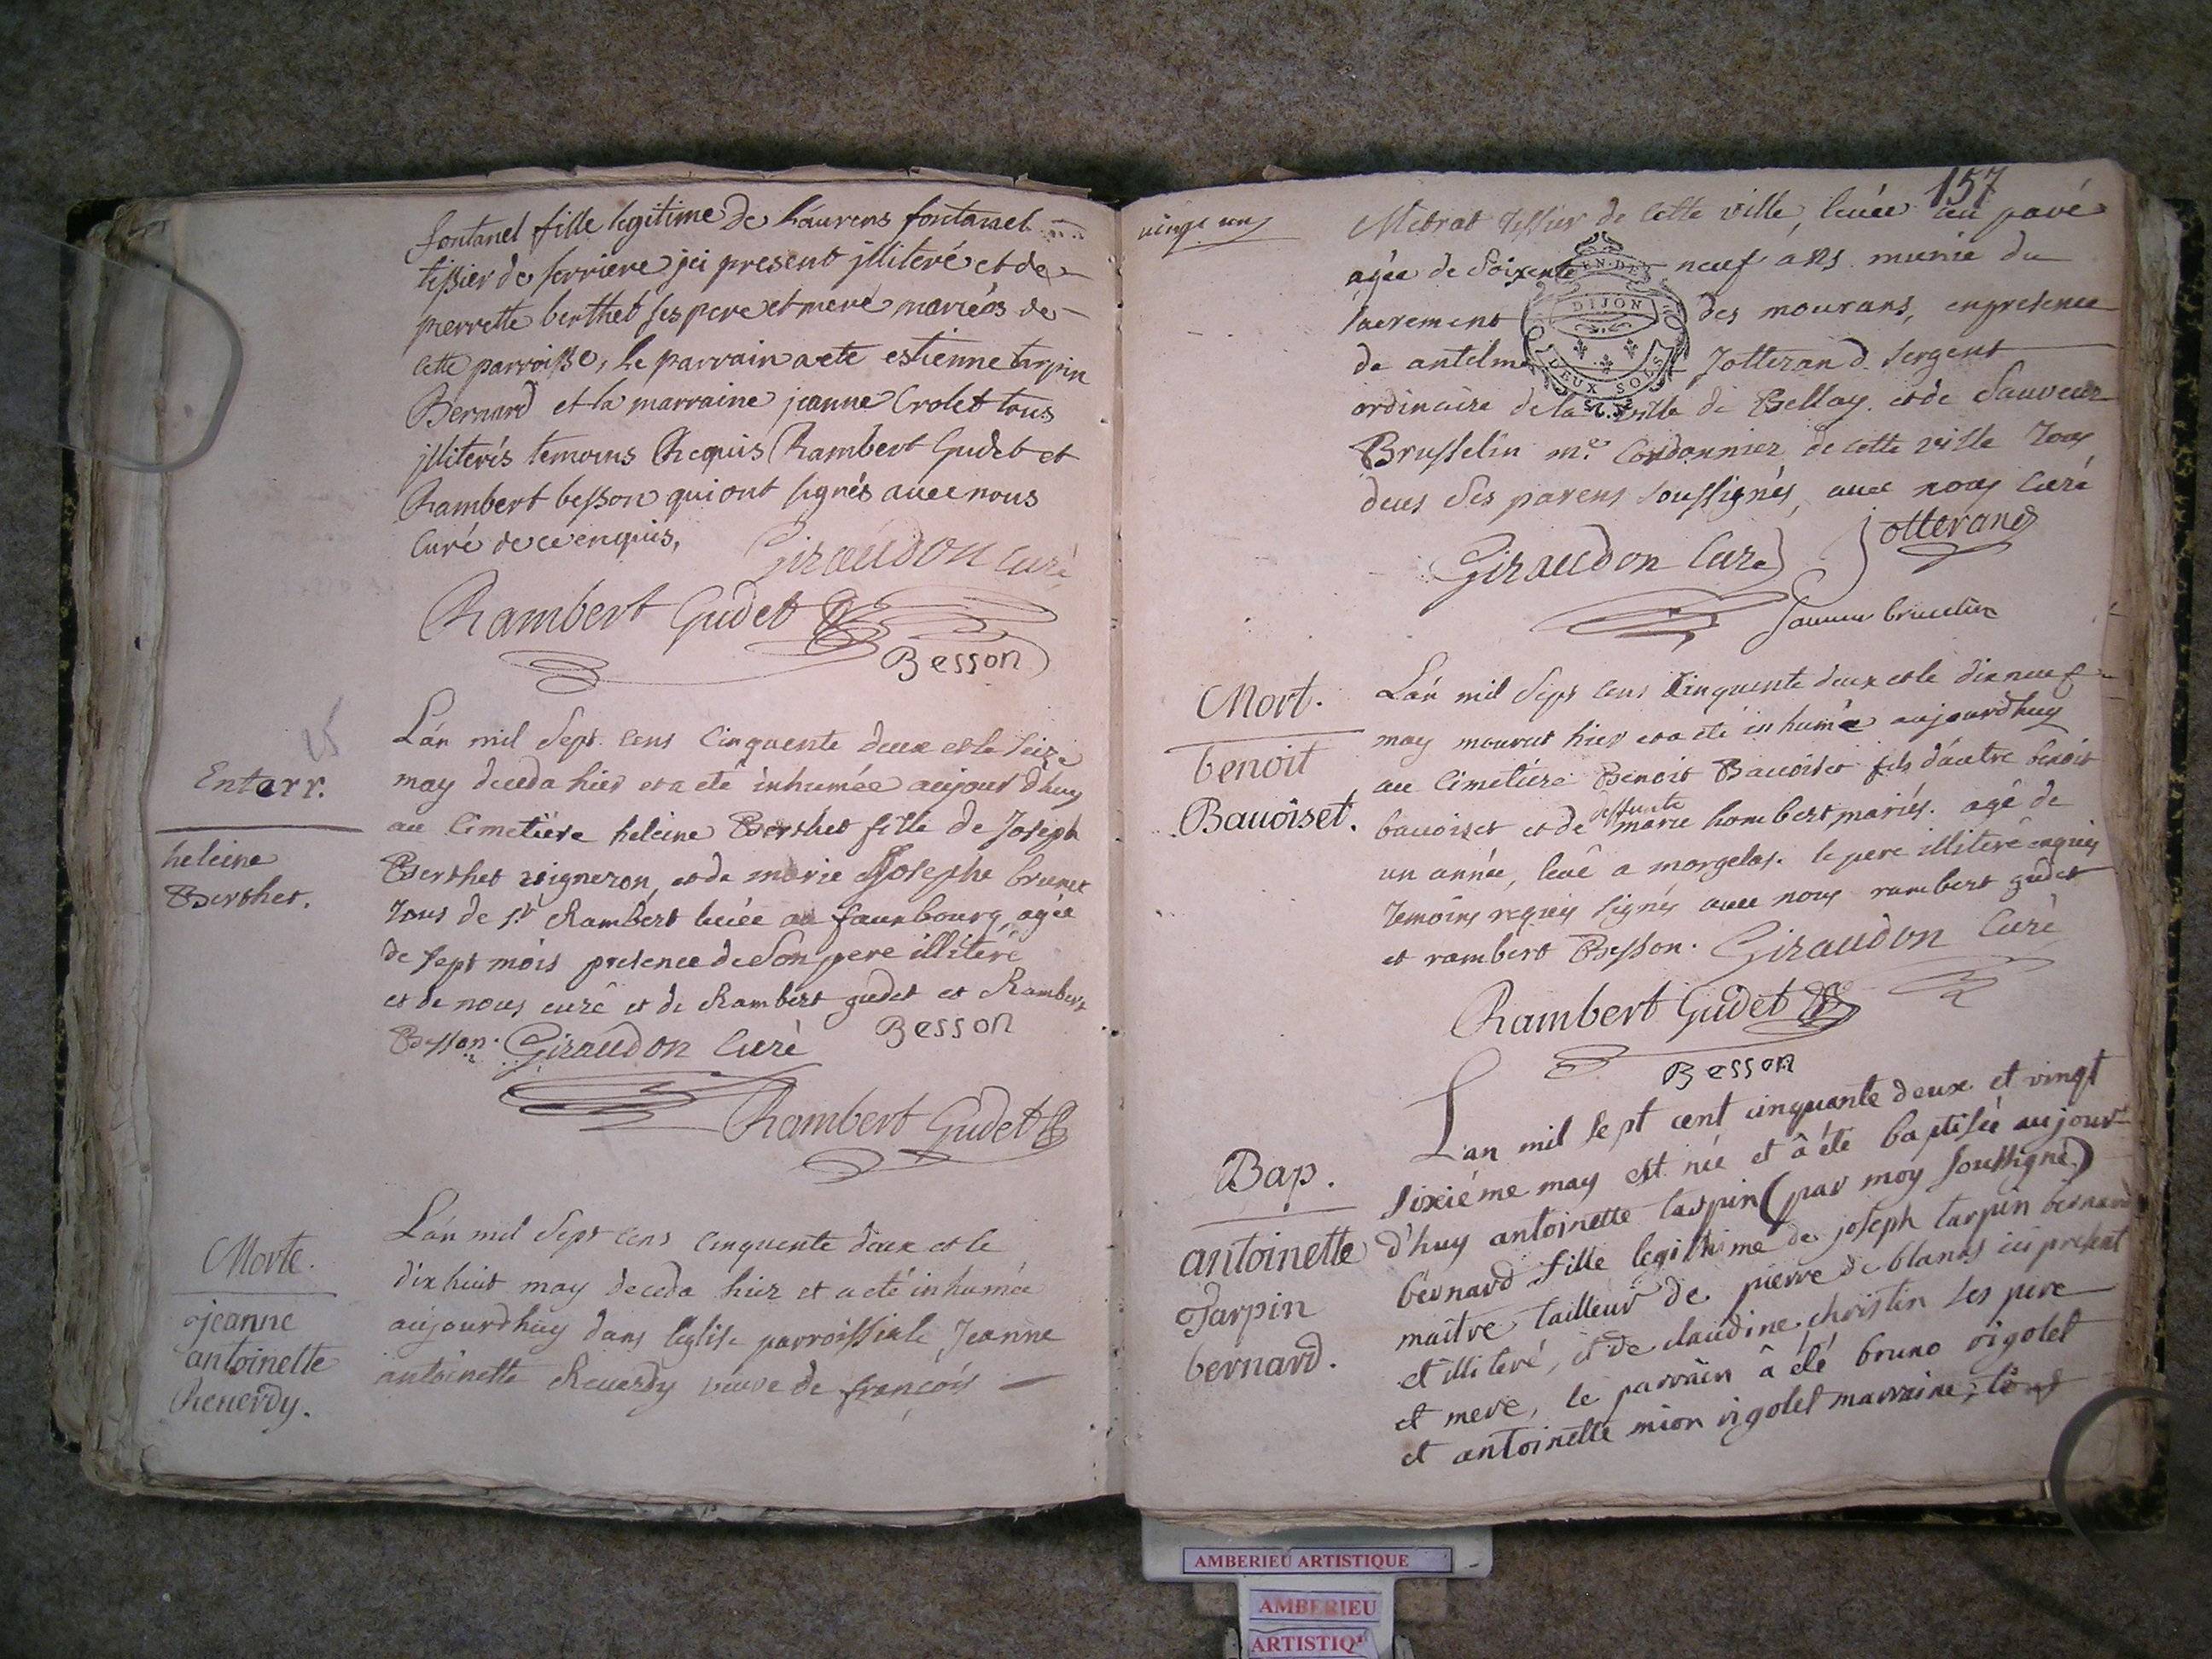 fontanel fille legitime de Laurens fontanel
tissier de serriere jci present jlliteré et de
pierrette berthet ses pere et mere mariés de
cette parroisse, le parrain a ete estienne tarpin
Bernard et la marraine jeanne Crolet tous
jlliterés temoins Requis Rambert Gudet et
Rambert besson qui ont signés avec nous
Curé de ce enquis,
Giraudon Curé
Rambert Gudet
Besson
Enterr.
heleine
Berthet.
L'an mil sept cens cinquente deux et le seize
may deceda hier et a eté inhumée aujourd'huy
au cimetiére heleine Berthet fille de Joseph
Berthet vigneron, et de marie Josephe brunet
tous de st Rambert levée au fauxbourg, agée
de sept mois presence de son pere illiteré
et de nous curé et de Rambert gudet et Rambert
Besson. Giraudon Curé
Besson
Rambert Gudet
Morte.
jeanne
antoinette
Reverdy.
L'an mil sept cens cinquente deux et le
dix huit may deceda hier et a eté inhumée
aujourdhuy dans l'église parroissiale Jeanne
antoinette Reverdy veuve de françois
157
vingt un
Metrat tessier de cette ville, levée au pavé
agée de soixente neuf ans munie du
sacrement des mourans, en presence
de antelme Jotterand sergent
ordinaire de la ville de Bellay et de Sauveur
Brusselin me. Cordonnier de cette ville tous
deux ses parens soussignés, avec nous curé
Giraudon Curé
Jotterand
DIJON
DEUX SOLS
Mort.
benoit
Bavoiset.
L'an mil sept cens cinquente deux et le dix neuf
may mourut hier et a eté inhumé aujourdhuy
au cimetiére Benoit Bavoiset fils d'autre benoit
bavoiset et de deffunte marie hombert mariés. agé de
un année, levé a morgelas. le pere illiteré enquis
temoins requis signés avec nous rambert gudet
et rambert Besson. Giraudon Curé
Rambert Gudet
Besson
Bap.
antoinette
Tarpin
bernard.
L'an mil sept cent cinquante deux et vingt
sixiéme may est née et â été baptisée aujour
d'huy antoinette tarpin (par moy soussigné)
bernard fille legithime de joseph tarpin bernard
maitre tailleur de pierre de blanas ici present
et illiteré, et de claudine christin ses pere
et mere, le parrain â été bruno rigolet
et antoinette mion rigolet marraine, tous
AMBERIEU ARTISTIQUE
AMBERIEU
ARTISTIQ